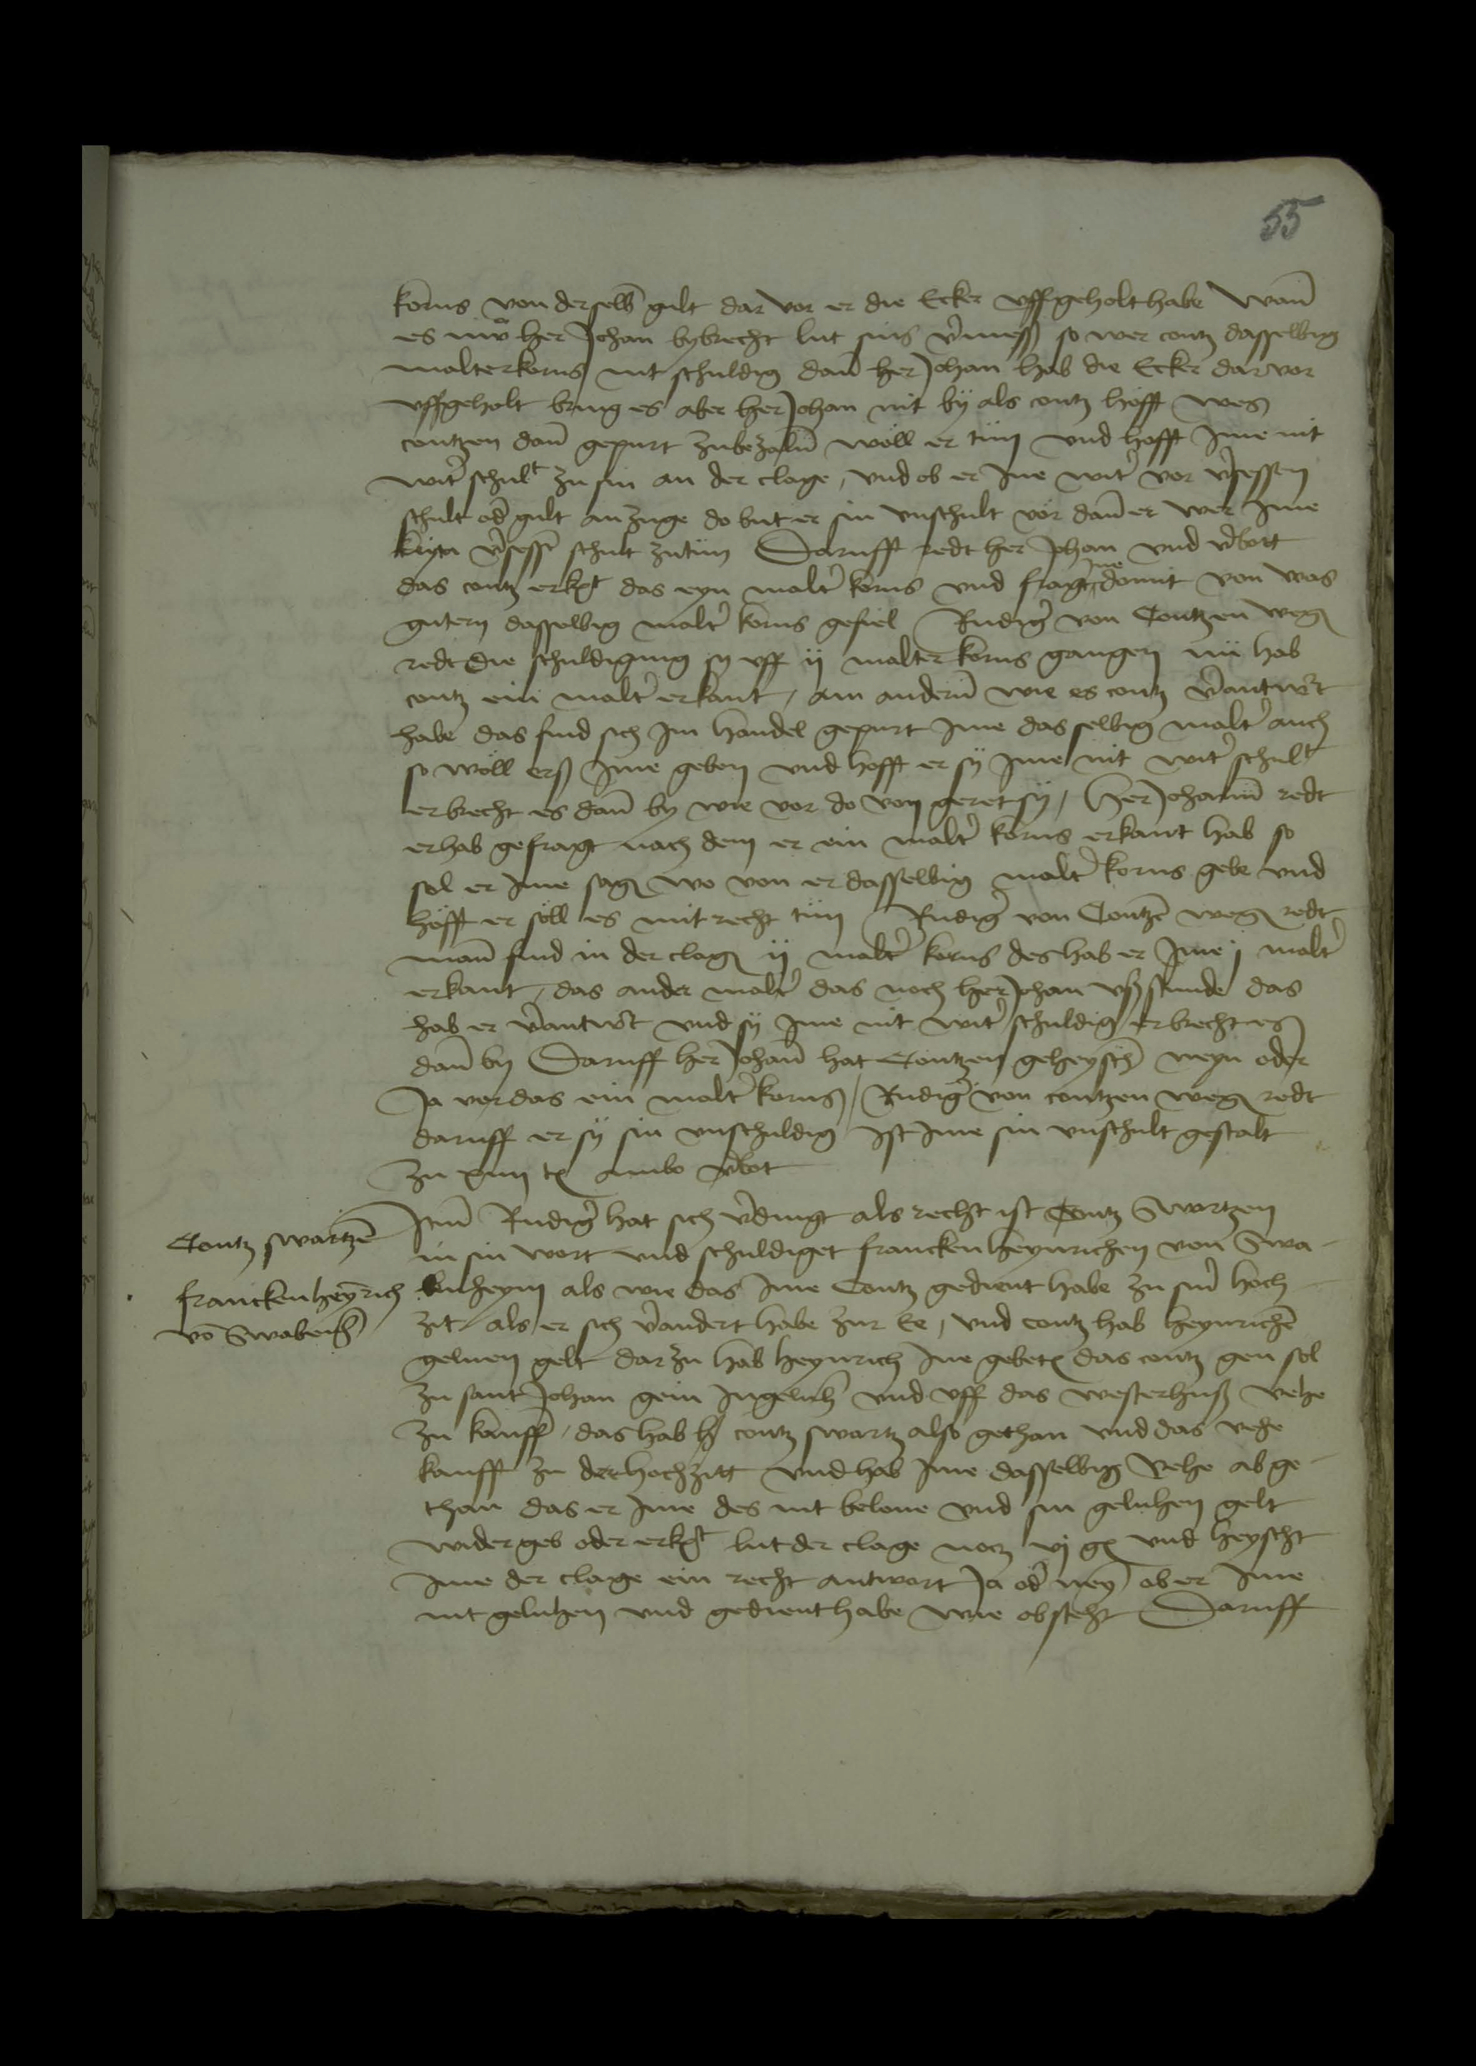 55
korns von derselb̄ gult dar vor er die Ecker uffgeholt habe wan̄
es nuͦ her Johan bybrecht lut sins v̓messs so wer contz dasselbig
malter korns nit schuldig dan̄ her Johan hab die Ecker dar vor
uffgeholt bring es aber her Johan nit bÿ als contz hofft wes
contzen dan̄ gepurt zubezaln̄ woll er tun und hofft Ime nit
wit̓ schult zu sin an der clage, und ob er Ine wit̓ vor v̓sessen
schult od̓ gult anzuge do but er sin unschult vor dan̄ er wer Ime
keyn v̓sess schult zutun Daruff redt her Johan und v̓bott
das contz erkēt das eyn malt̓ korns und fragt Ine domit von was
gutern dasselbig malt̓ korns gefiel Rudig̓ von Contzen weḡ
redt Die schuldigung sy uff ij malter korns gangen nu hab
contz ein malt̓ erkant, am andern̄ wie es contz v̓antw̓t
habe das find sich Im handel gepurt Ime das selbig malt̓ auch
so woll erß Ime geben und hofft er sÿ Ime nit wit̓ schult
erbrecht es dan̄ by wie vor do von geret sÿ, Her Johann̄ redt
er hab gefragt nach dem er ein malt̓ korns erkant hab so
sol er Ime saḡ wo von er dasselbig malt̓ korns gebe und
hofft er soll es mit recht tun Rudig̓ von Contzē weḡ redt
man̄ find in der claḡ ij malt̓ korns des hab er Ime j malt̓
erkant, das ander malt̓ das noch her Johan ußstunde das
hab er v̓antw̓t und sÿ Ime nit wit̓ schuldig erbrecht es
dan̄ by Daruff her Johan̄ hat Contzen geheysch̄ neyn oder
Ja vor das ein malt̓ korns, Rudig̓ von contzen weḡ redt
daruff er sÿ sin unschuldig ist Ime sin unschult gestalt
zu xiiij tē ambo v̓bot
Itm̄ Rudig̓ hat sich v̓dingt als recht ist Contz Swartzen
in sin wort und schuldiget francken heynrichen von Swa-
benheym als wie das Ime Contz gedient habe zu sin̄ hoch
zit als er sich v̓andert habe zur Ee, und contz hab heynrichē
geluen gelt dar zu hab heynrich Ine gebetē das contz gen sol
zu sant Johan gein Ingelnh̄ und uff das westerhuß vehe
zu kauff̄, das hab contz swartz also gethan und das vehe
kaufft zu der hochzitt und hab Ime dasselbig vehe abge-
than das er Ime des nit belone und sin geluhen gelt
wider geb oder erkēt lut der clage noch vj gē und heyscht
Ime der clage ein recht antwort Ja od̓ ney ob er Ime
nit geluhen und gedient habe wie obsteht Daruff
Contz swartzē
francken heyn̄rich
vō Swabenh̄